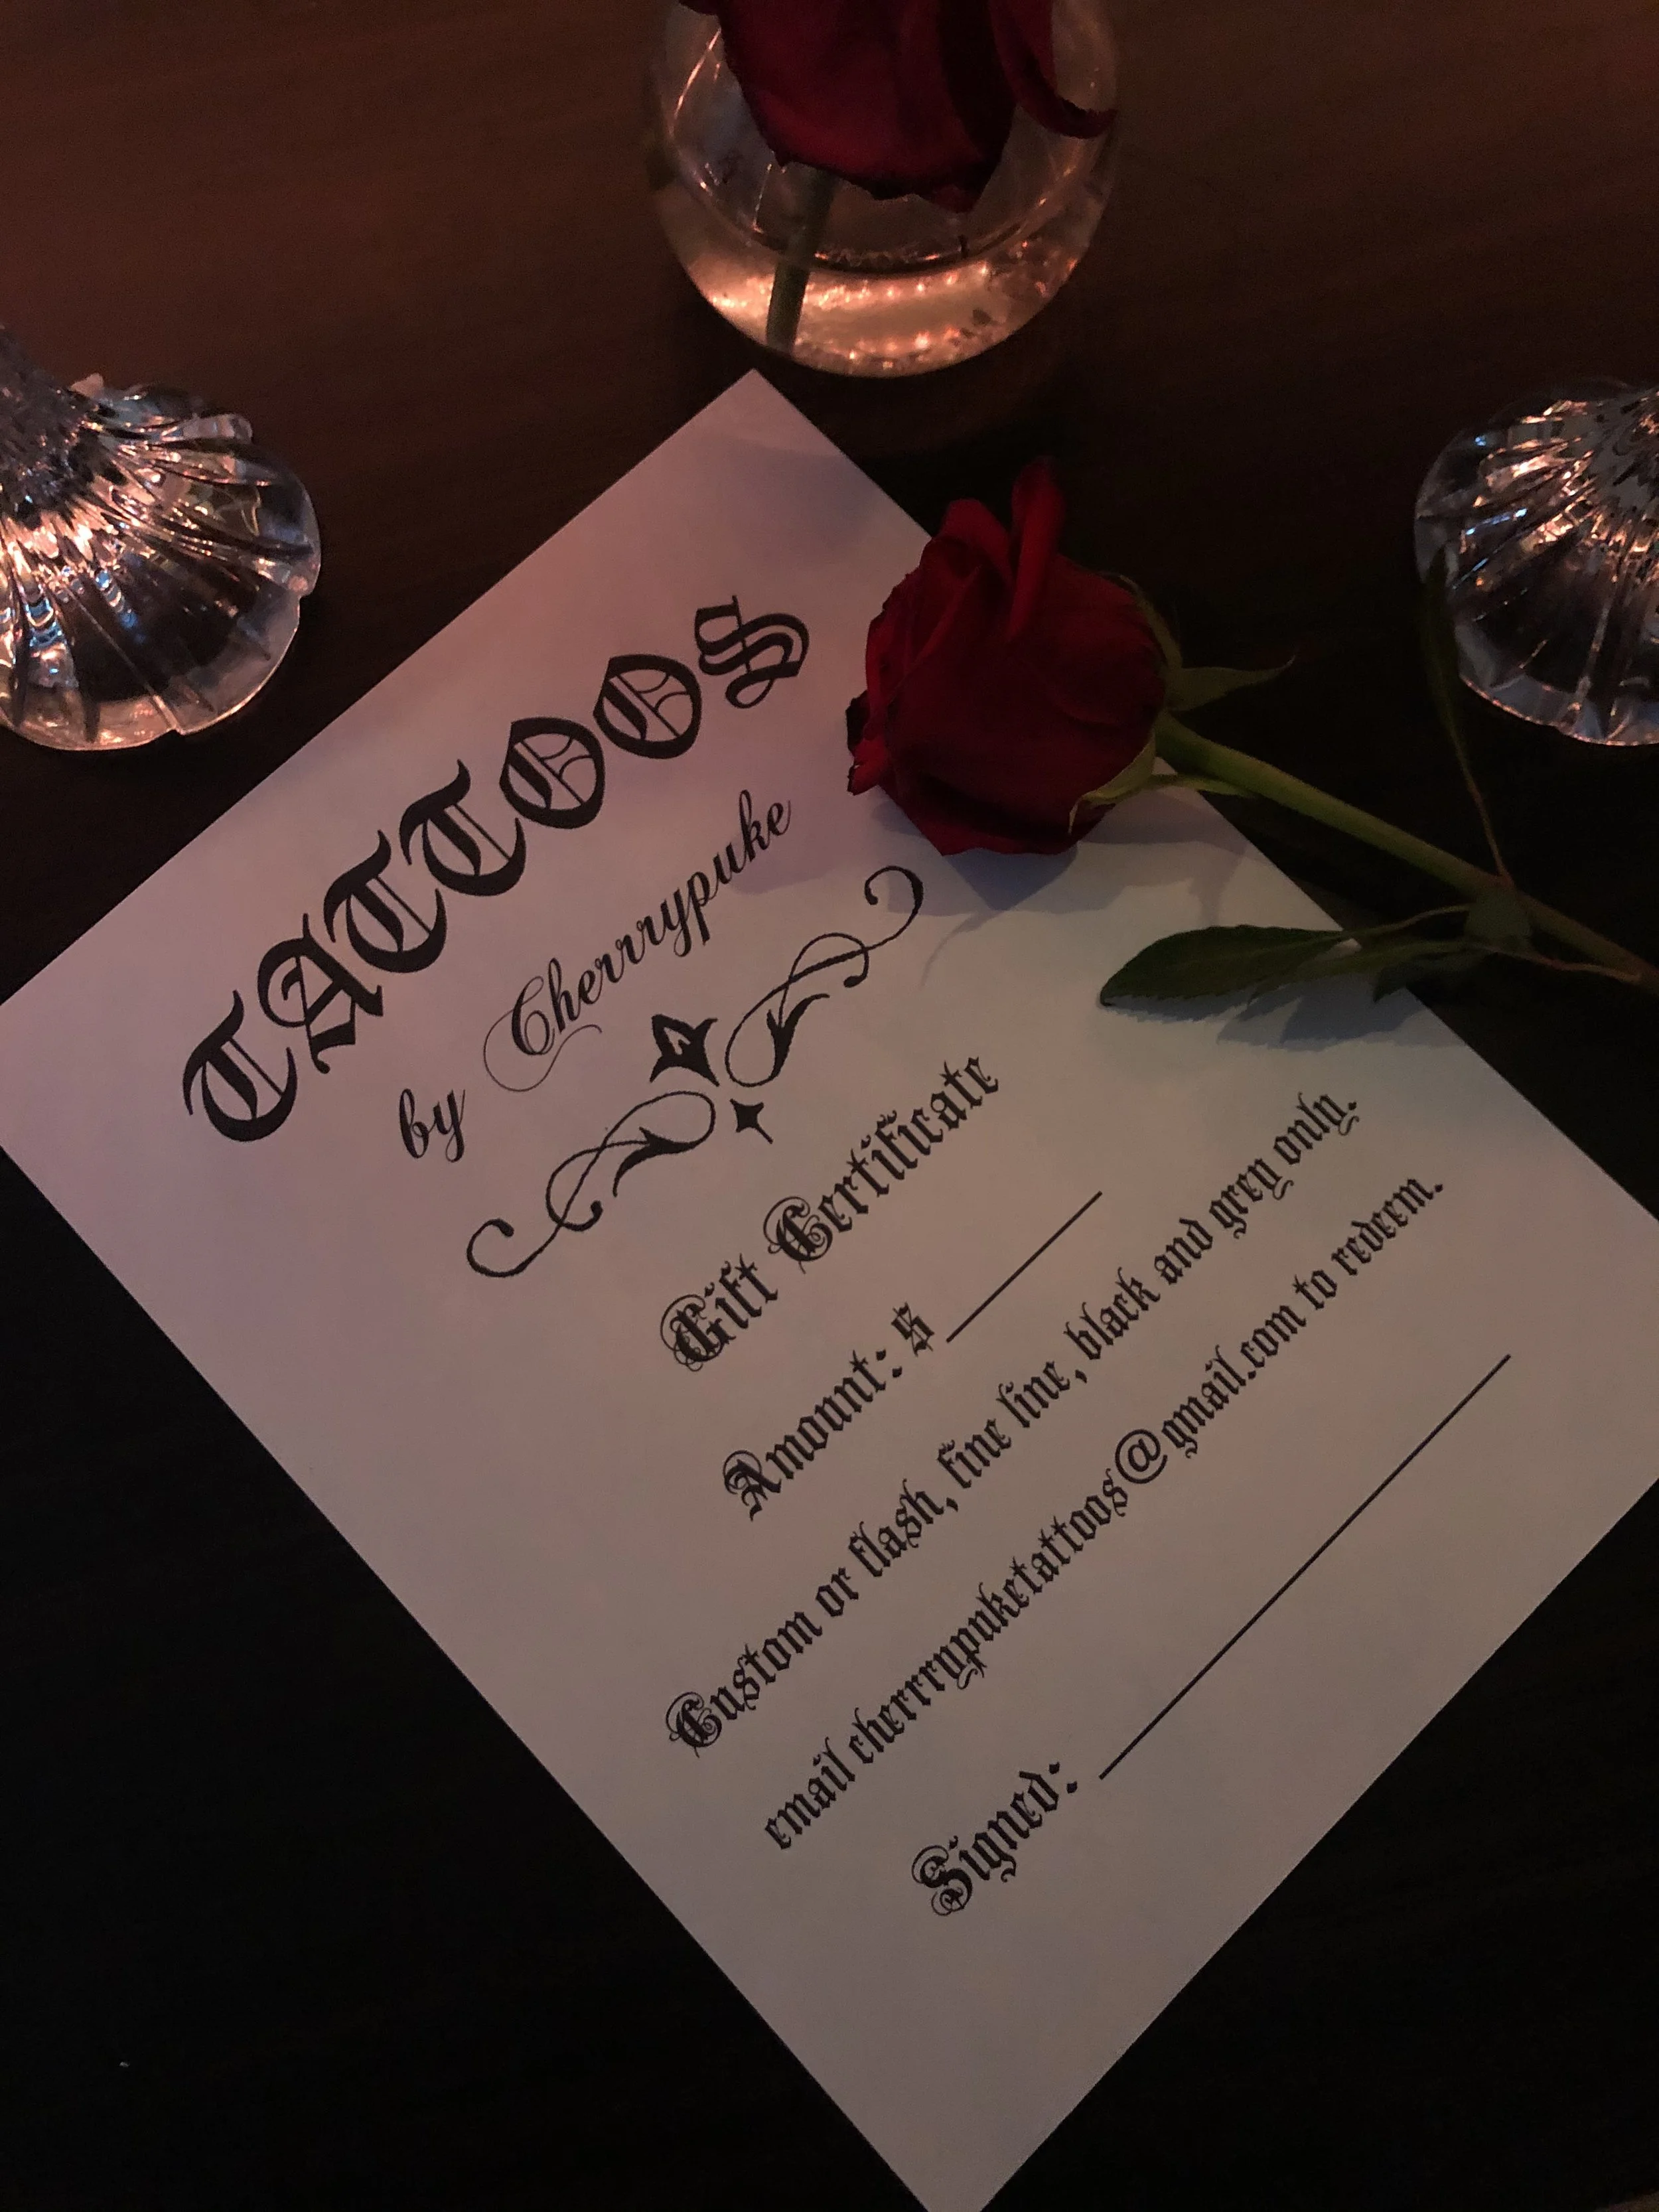 TATTOOS
by Cherrypuke
Gift Certificate
Amount: $
Custom or flash, fine line, black and grey only.
email cherrrypuketattoos@gmail.com to redeem.
Signed: